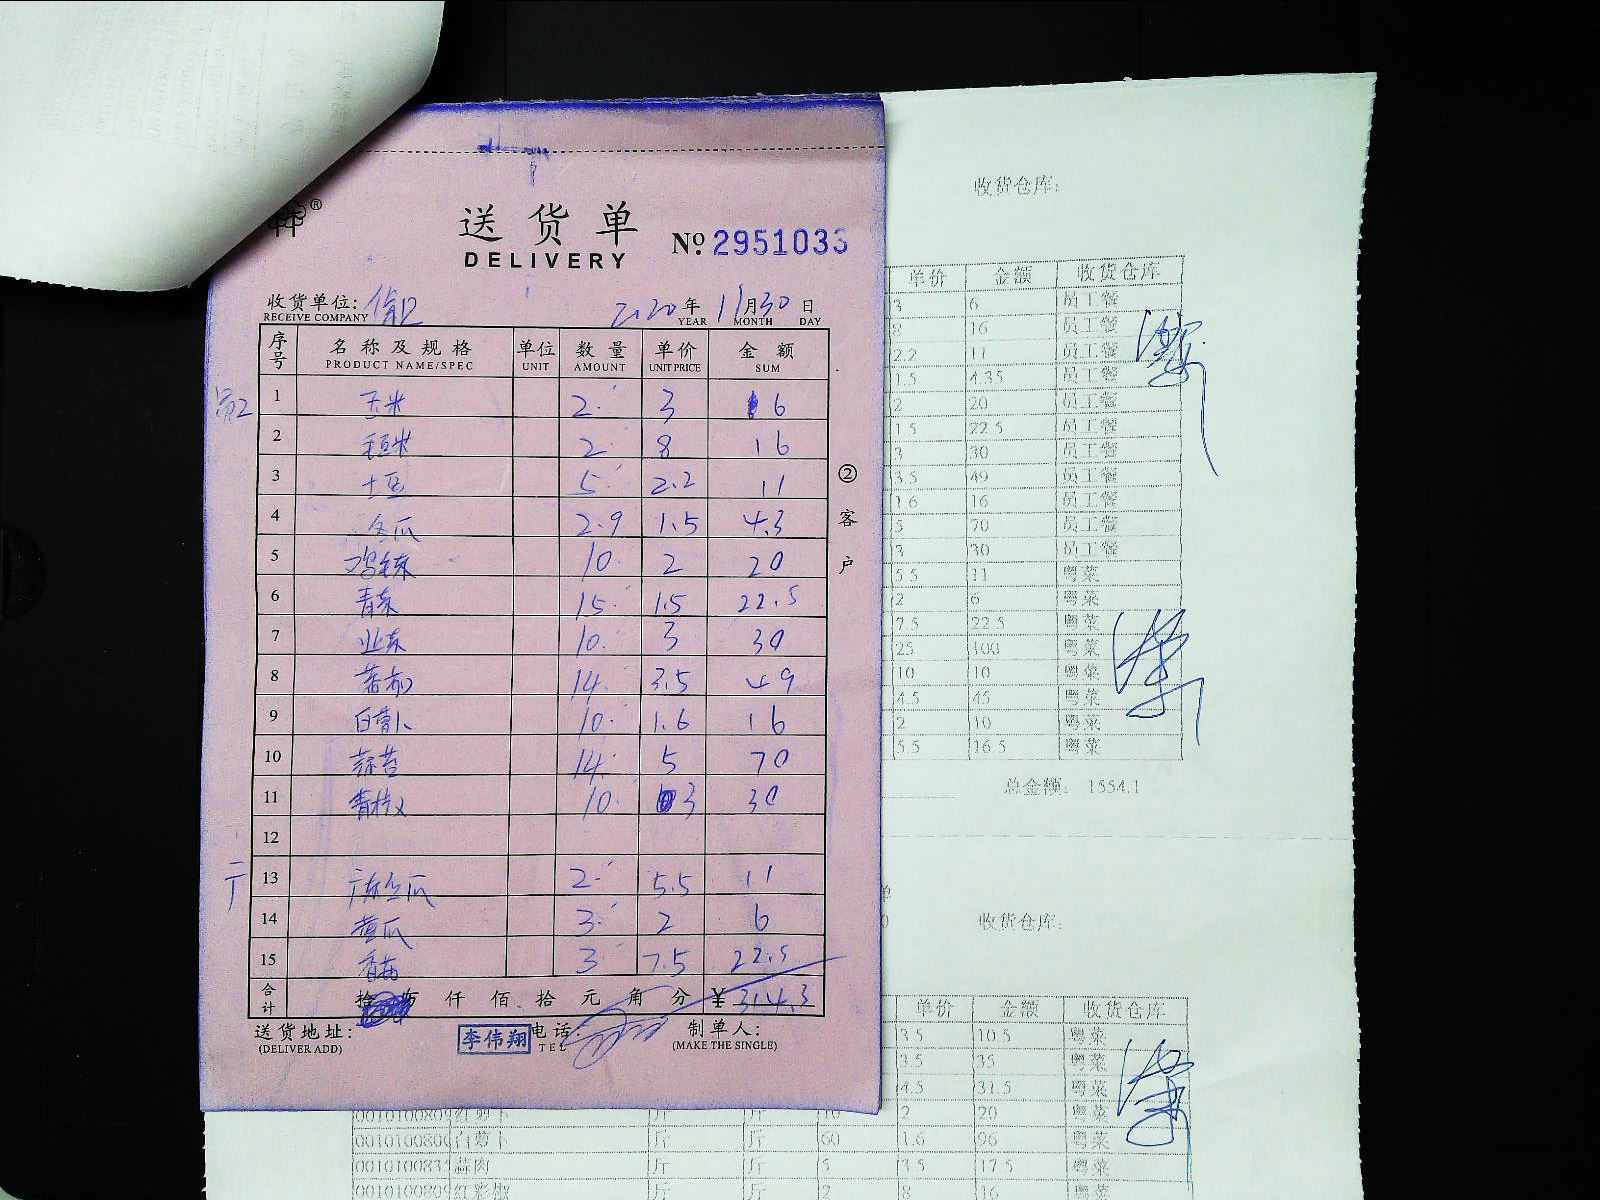 送货单
DELIVERY
No. 2951033
收货单位:
RECEIVE COMPANY
2020年 11月30日
YEAR MONTH DAY
序号 名称及规格 单位 数量 单价 金额
PRODUCT NAME/SPEC UNIT AMOUNT UNIT PRICE SUM
1 玉米 2 3 6
2 2 8 16
3 土豆 5 2.2 11
4 冬瓜 2.9 1.5 4.3
5 10 2 20
6 青菜 15 1.5 22.5
7 10 3 30
8 14 3.5 49
9 白萝卜 10 1.6 16
10 蒜苔 14 5 70
11 10 3 30
12
13 2 5.5 11
14 黄瓜 3 2 6
15 香菇 3 7.5 22.5
合计 拾 万 仟 佰 拾 元 角 分 ¥ 314.3
送货地址: 李伟翔 电话: 制单人:
(DELIVER ADD) TEL (MAKE THE SINGLE)
② 客户
收货仓库:
单价 金额 收货仓库
3 6 员工餐
8 16 员工餐
2.2 11 员工餐
1.5 4.35 员工餐
2 20 员工餐
1.5 22.5 员工餐
3 30 员工餐
3.5 49 员工餐
1.6 16 员工餐
5 70 员工餐
3 30 员工餐
5.5 11 粤菜
2 6 粤菜
7.5 22.5 粤菜
25 100 粤菜
10 10 粤菜
4.5 45 粤菜
2 10 粤菜
5.5 16.5 粤菜
总金额: 1554.1
收货仓库:
单价 金额 收货仓库
3.5 10.5 粤菜
3.5 35 粤菜
4.5 31.5 粤菜
斤 斤 10 2 20 粤菜
白萝卜 斤 斤 60 1.6 96 粤菜
001010083 蒜肉 斤 斤 5 3.5 17.5 粤菜
红彩椒 斤 斤 2 8 16 粤菜